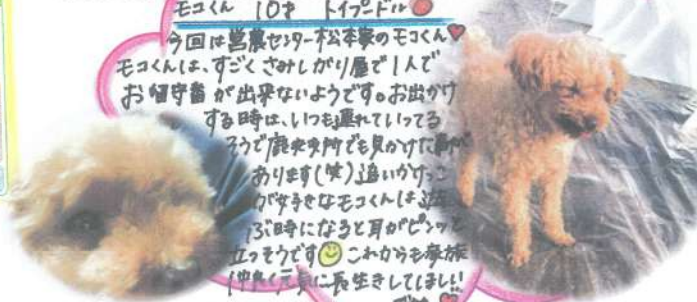 モコくん 10才 トイプードル
今回は営農センター松本家のモコくん♥
モコくんは、すごくさみしがり屋で1人で
お留守番が出来ないようです。お出かけ
する時は、いつも連れていってる
そうで鹿央支所でも見かけた事が
あります(笑)追いかけっこ
が好きなモコくんは遊
ぶ時になると耳がピンッと
立つそうです これからも家族
仲良く元気に長生きしてほしい
です♥